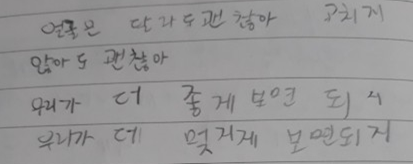 얼룩은 달라도 괜찮아 고치지
않아도 괜찮아
우리가 더 좋게 보면 되지
우리가 더 멋지게 보면되지